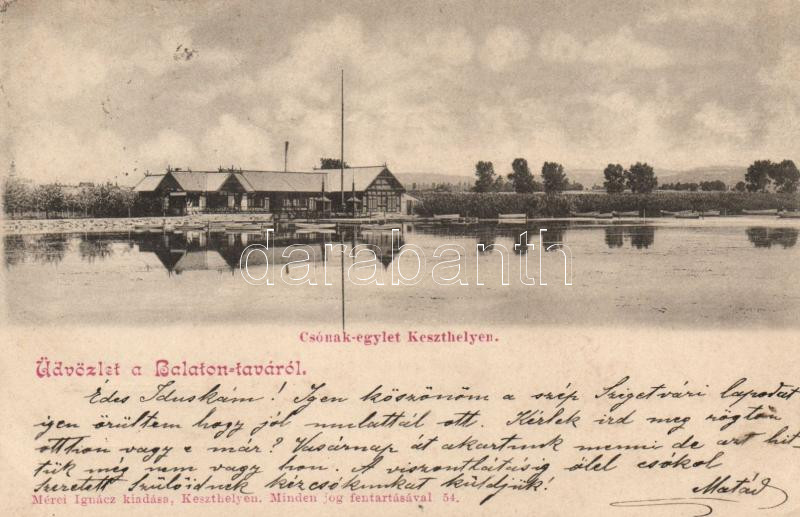 darabanth
Csónak-egylet Keszthelyen.
Üdvözlet a Balaton-taváról.
Édes Iduskám! Igen köszönöm a szép Szigetvári lapodat
igen örültem hogy jól mulattál ott. Kérlek ird meg rögtön
otthon vagy e már? Vasárnap át akartunk menni de azt hit-
tük még nem vagy hon. A viszonthatásig ölel csókol
Szeretett Szülőidnek kézcsókunkat küldjük!
Mérei Ignácz kiadása, Keszthelyen. Minden jog fentartásával 54.